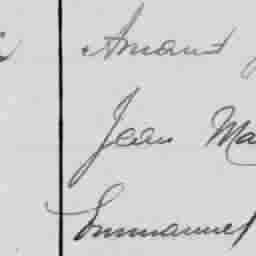 Amand
Jean Ma
Emmanuel